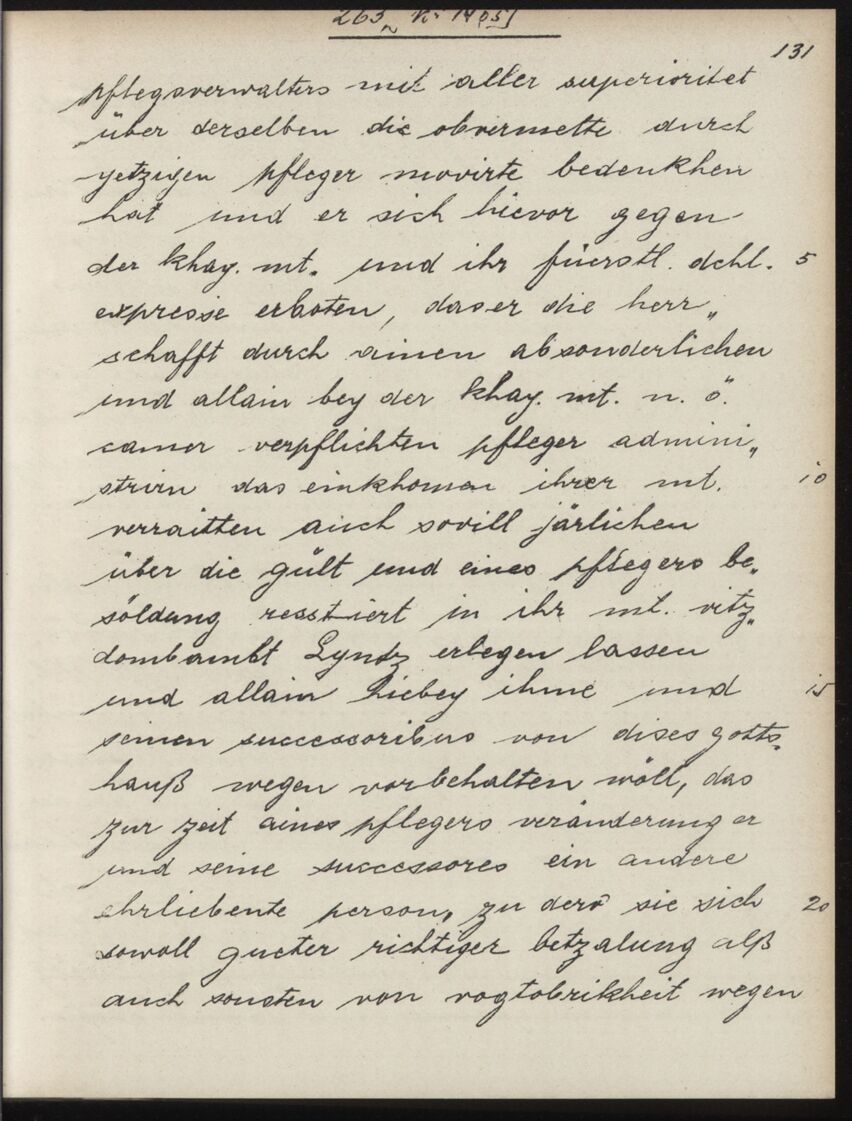 263
131
pflegsverwalters mit aller superioritet
über derselben die obvermelte durch
yetzigen pfleger movirte bedenkhen
hat und er sich hievor gegen
der khay. mt. und ihr fürstl. dchl. 5
expresse erboten, das er die herr„
schafft durch ainen absonderlichen
und allain bey der khay. mt. n. ö.
camer verpflichten pfleger admini„
strirn das einkhomen ihrer mt. 10
verraitten auch sovill järlichen
über die gült und eines pflegers be„
söldung resstiert in ihr mt. vitz„
dombambt Lyndz erlegen lassen
und allain hiebey ihme und 15
seinen successoribus von dises gotts„
hauß wegen vorbehalten wöll, das
zur zeit aines pflegers veränderung er
und seine successores ein andere
ehrliebente person, zu dero sie sich 20
sowoll gueter richtiger betzalung alß
auch sonsten von vogtobrikheit wegen